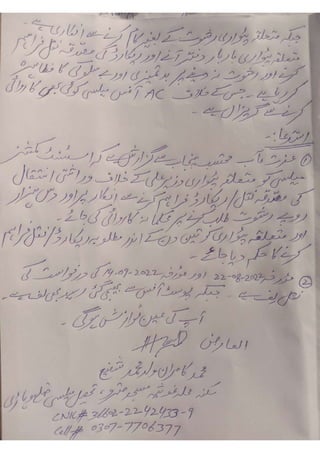 جبکہ متعلقہ پٹواری رشوت کے بغیر کام کرنے سے انکاری ہے۔
متعلقہ پٹواری بار بار دفتر آنے اور ریکارڈ کی مصدقہ نقل فراہم
کرنے اور رشوت نہ دینے پر بدتمیزی اور بدسلوکی کا مظاہرہ
کر رہا ہے۔ جس کے خلاف AC آفس میلسی کوئی بھی کاروائی
کرنے سے گریزاں ہے۔
استدعا:-
① عزت مآب محتسب پنجاب سے گزارش ہے کہ اسسٹنٹ کمشنر
میلسی کو متعلقہ پٹواری وزیر علی کے خلاف وراثتی انتقال
کی مصدقہ نقل/ریکارڈ فراہم کرنے سے انکار پر اور دس ہزار
روپے رشوت طلب کرنے پر محکمانہ کاروائی کی جائے۔
اور متعلقہ پٹواری کو تین دن کے اندر مطلوبہ ریکارڈ/نقل فراہم
کرنے کا حکم دیا جائے۔
② مورخہ 22-08-2024 اور مورخہ 19-07-2022 کی درخواست کی
نقل لف ہے۔ جبکہ پوسٹ آفس سے بھیجی گئی رسید بھی لف ہے۔
آپ کی عین نوازش ہوگی۔
العارض
محمد کامران ولد محمد شفیع
سکنہ محلہ غوثیہ مسجد تحصیل میلسی ضلع وہاڑی
CNIC# 31602-2242433-9
Cell# 0307-7706377